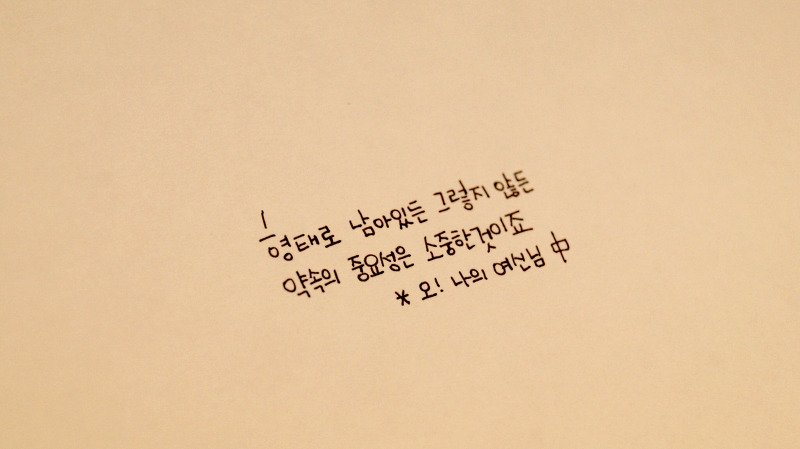 형태로 남아있든 그렇지 않든
약속의 중요성은 소중한것이죠
* 오! 나의 여신님 中